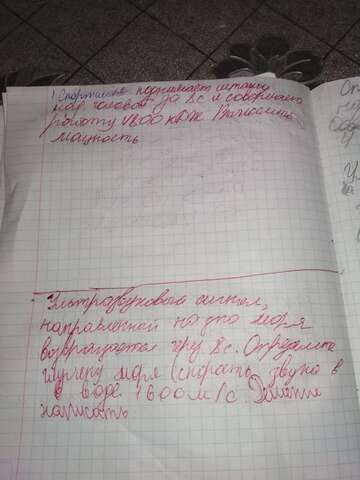 1 Спортсмен поднимает штангу
над головой за 8с и совершает
работу 1800 кДж Вычислить
мощность
Ультразвуковой сигнал,
направленный на дно моря
возвращается через 8с. Определите
глубину моря (скорость звука в
в воде 1600м/с
написать